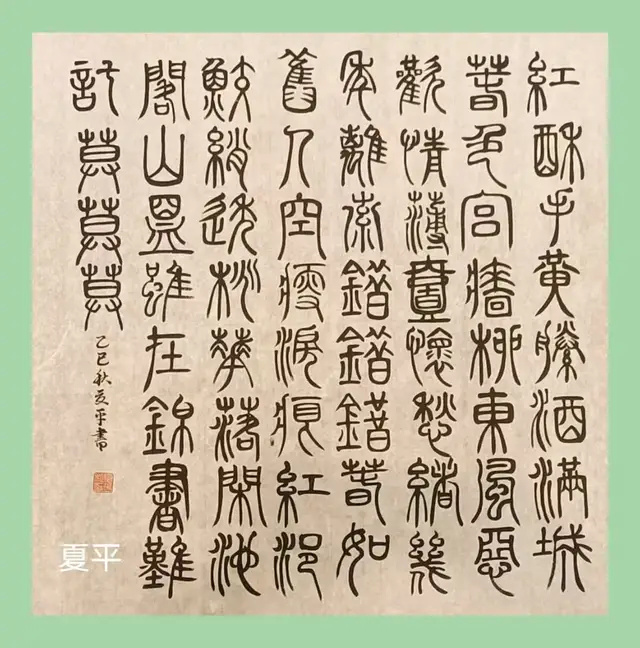 紅酥手黃縢酒滿城
春色宮牆柳東風惡
歡情薄壹懷愁緒幾
年離索錯錯錯春如
舊人空瘦淚痕紅浥
鮫綃透桃華落閑池
閣山盟雖在錦書難
託莫莫莫
乙巳秋夏平書
夏平